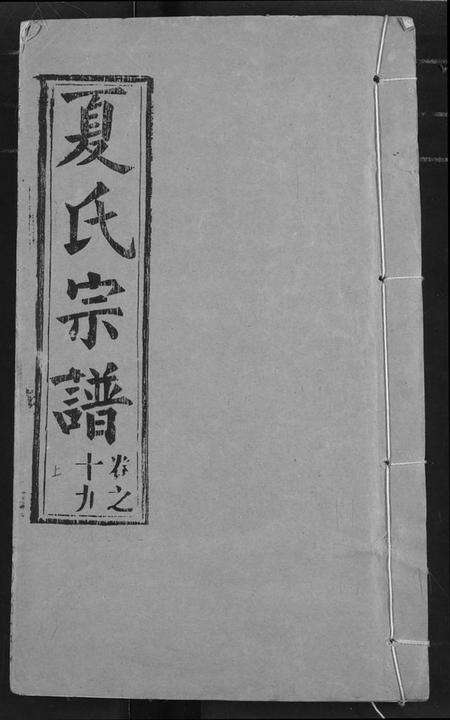 夏氏宗譜
卷之
十九
上